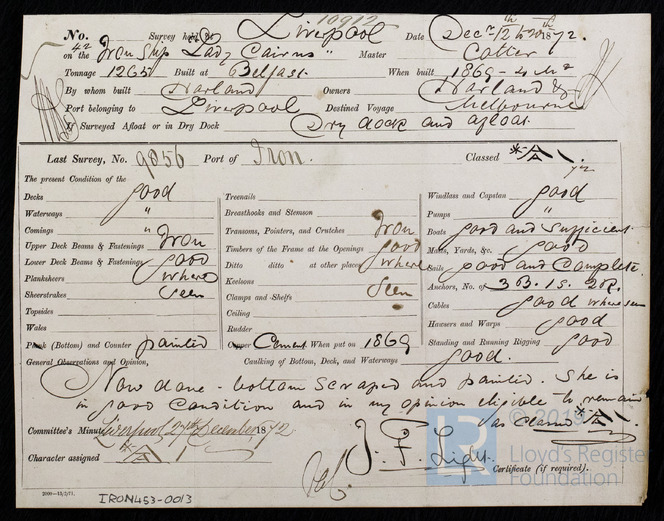 10912
No. 42 Survey held at Liverpool Date Decr 12th & 20th 1872.
on the Iron Ship "Lady Cairns" Master Cotter
Tonnage 1265 Built at Belfast. When built 1869 - 4 Mo
By whom built Harland Owners Harland &
Port belonging to Liverpool Destined Voyage Melbourne
If Surveyed Afloat or in Dry Dock Dry dock and afloat
Last Survey, No. 9856 Port of Iron. Classed A 1
The present Condition of the
Decks good
Waterways "
Comings "
Upper Deck Beams & Fastenings Iron
Lower Deck Beams & Fastenings good
Planksheers where
Sheerstrakes seen
Topsides
Wales
Plank (Bottom) and Counter painted
Treenails
Breasthooks and Stemson
Transoms, Pointers, and Crutches Iron
Timbers of the Frame at the Openings good
Ditto ditto at other places where
Keelsons seen
Clamps and Shelfs
Ceiling
Rudder
Copper Cement When put on 1869
Caulking of Bottom, Deck, and Waterways good.
Windlass and Capstan good
Pumps "
Boats good and sufficient
Masts, Yards, &c. good
Sails good and Complete
Anchors, No. of 3 B. 1 S. 2 K.
Cables good where seen
Hawsers and Warps good
Standing and Running Rigging good
General Observations and Opinion,
Now done - bottom scraped and painted. She is
in good condition and in my opinion eligible to remain
as classed A 1
Committee's Minute Liverpool 24th December 1872
Character assigned A 1
J. F. Light.
Certificate (if required).
2000-13/2/71.
IRON453-0013
© 2019
LR
Lloyd's Register
Foundation